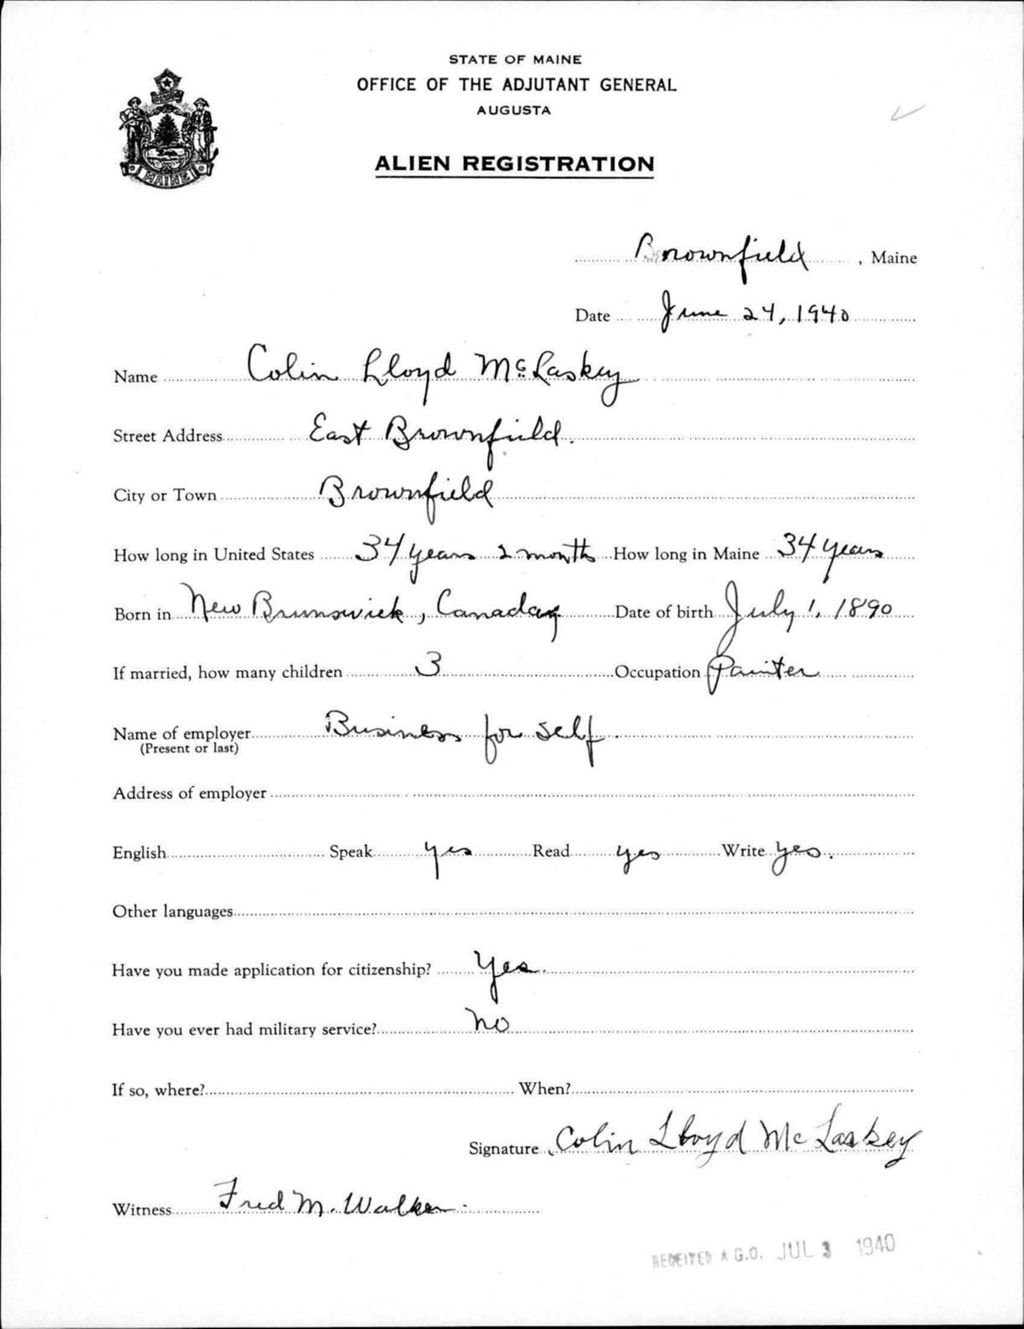 STATE OF MAINE
OFFICE OF THE ADJUTANT GENERAL
AUGUSTA
ALIEN REGISTRATION
MAINE
Brownfield, Maine
Date June 24, 1940
Name Colin Lloyd McLaskey
Street Address East Brownfield.
City or Town Brownfield
How long in United States 34 years 2 months How long in Maine 34 years
Born in New Brunswick, Canada Date of birth July 1, 1890
If married, how many children 3 Occupation Painter
Name of employer Business for self.
(Present or last)
Address of employer
English Speak yes Read yes Write yes.
Other languages
Have you made application for citizenship? Yes.
Have you ever had military service? no
If so, where? When?
Signature Colin Lloyd McLaskey
Witness Fred M. Walker.
RECEIVED A.G.O. JUL 3 1940